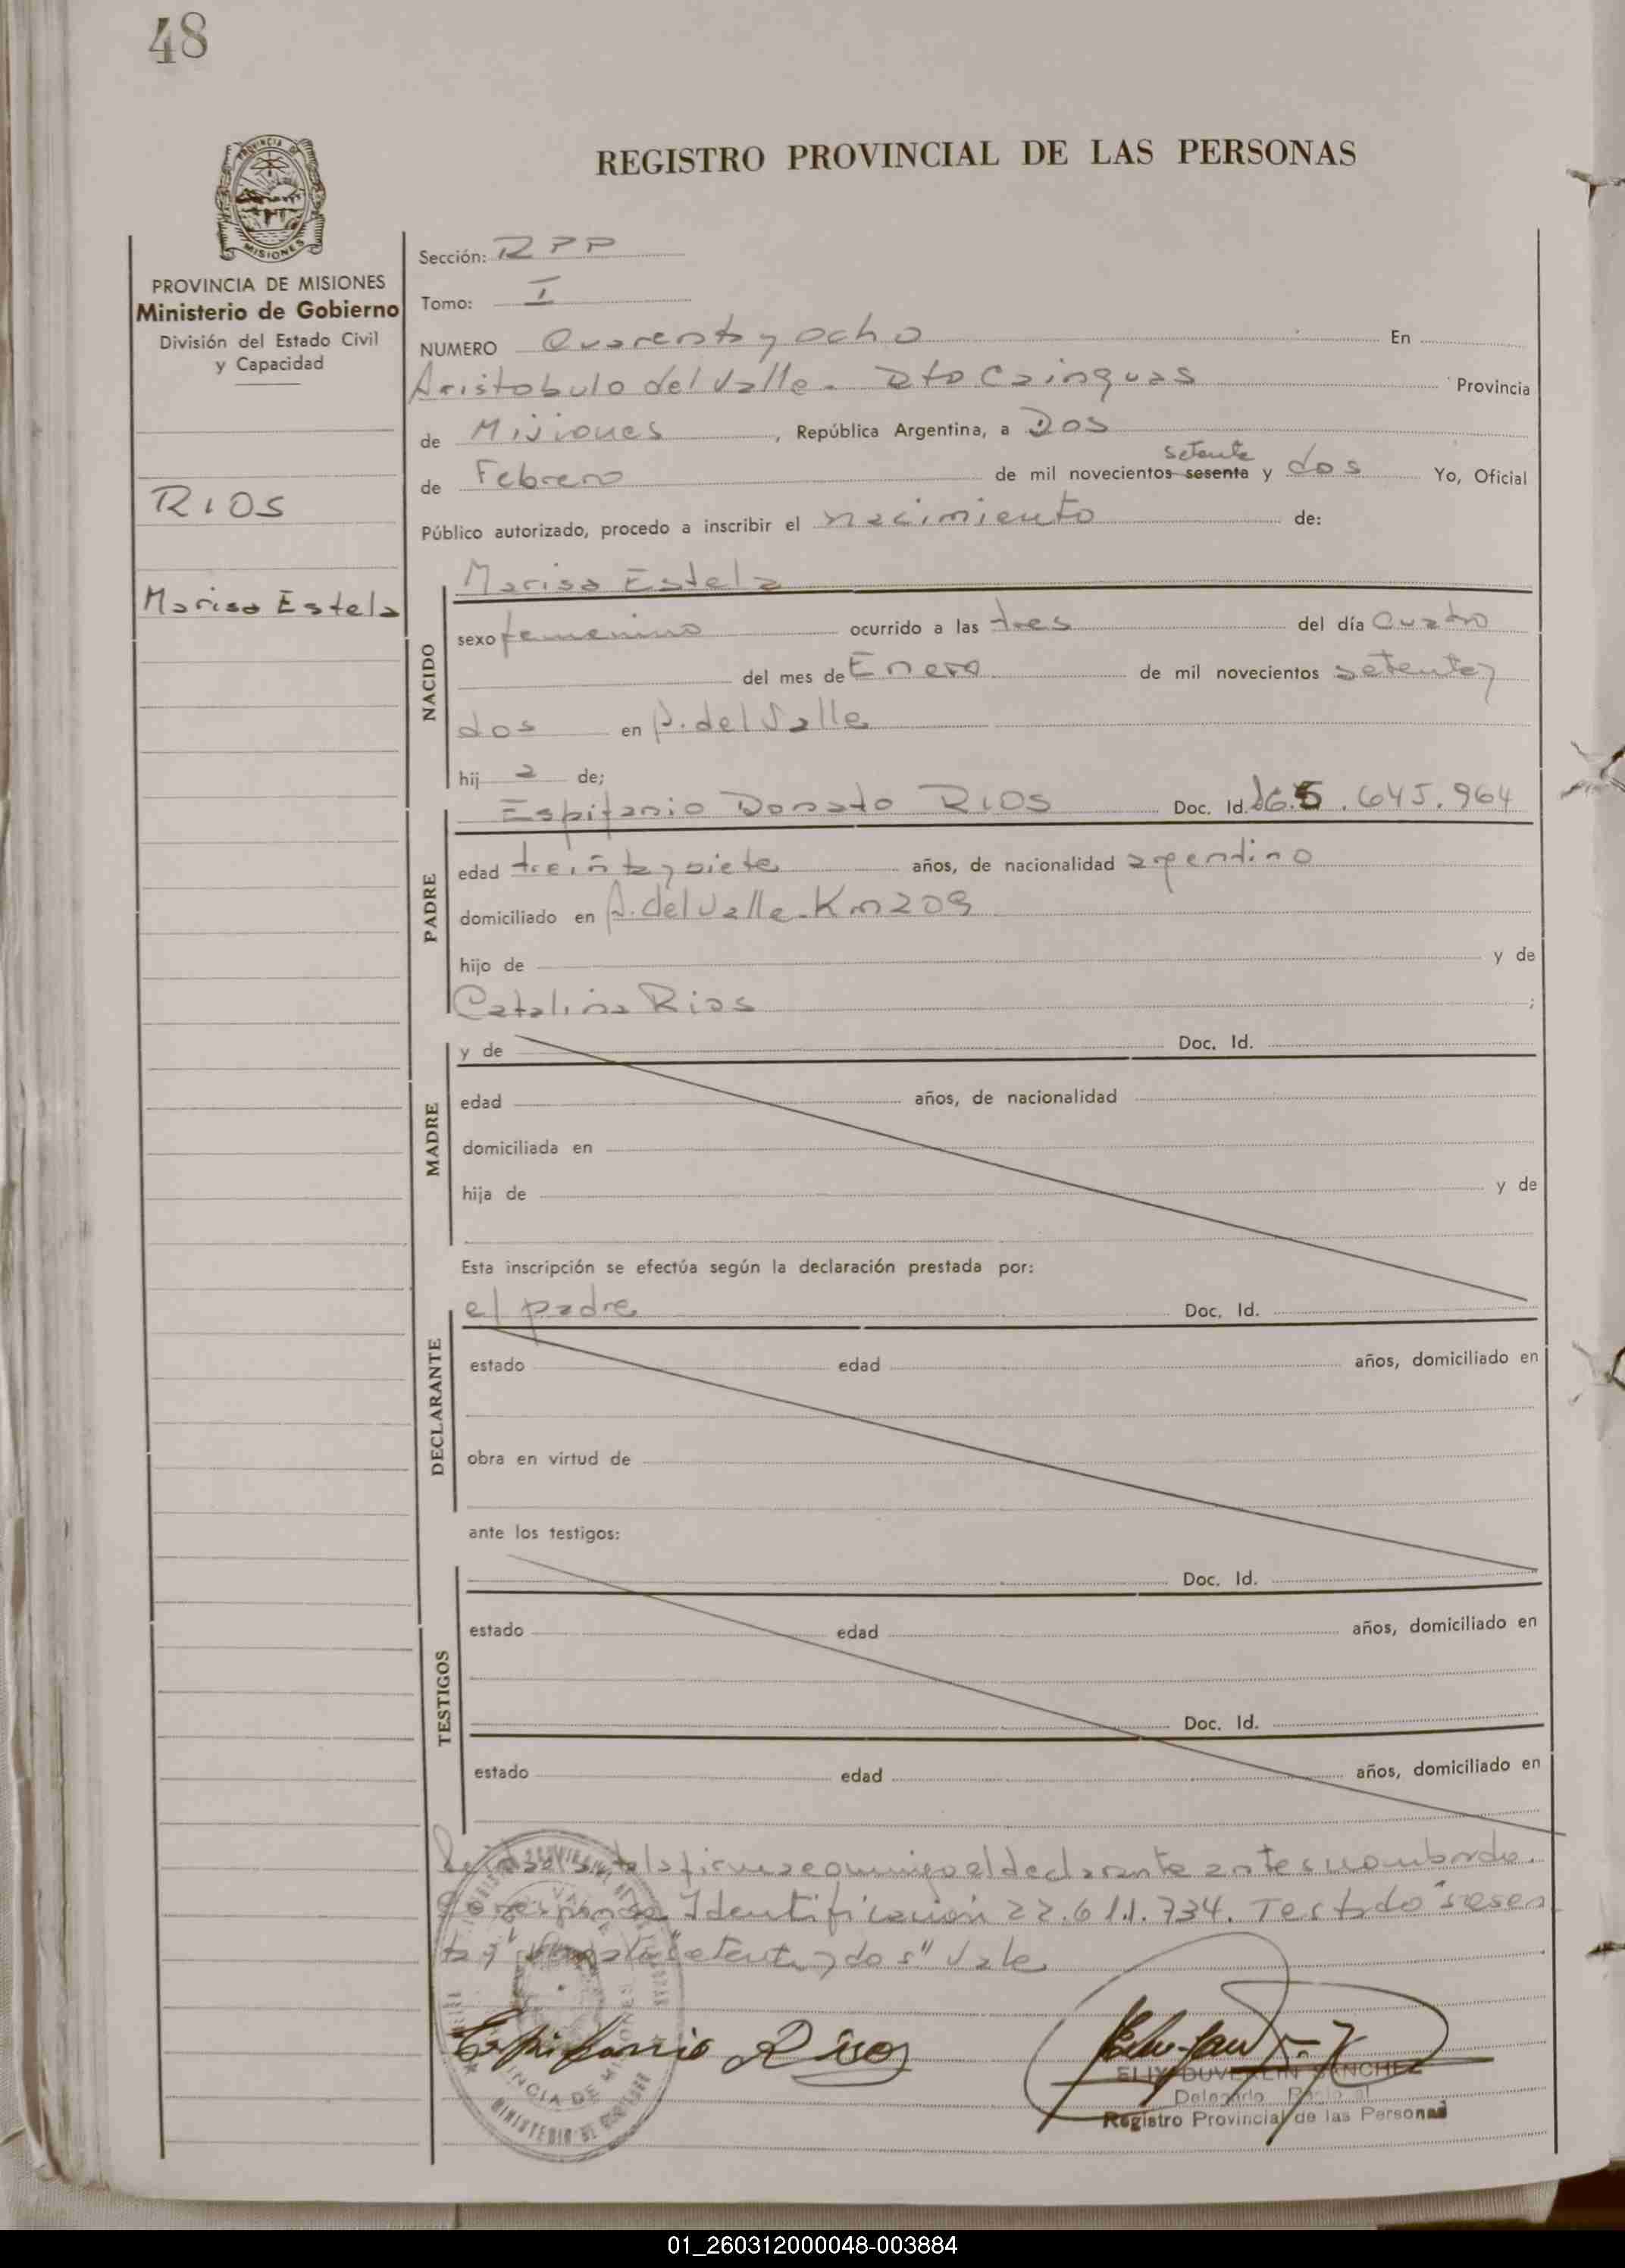 48
REGISTRO PROVINCIAL DE LAS PERSONAS
PROVINCIA DE MISIONES
Ministerio de Gobierno
División del Estado Civil
y Capacidad
RIOS
Marisa Estela
Sección: RPP
Tomo: I
NUMERO Cuarenta y ocho En
Aristobulo del Valle. Dto Cainguas Provincia
de Misiones, República Argentina, a Dos
setenta
de Febrero de mil novecientos sesenta y dos Yo, Oficial
Público autorizado, procedo a inscribir el nacimiento de:
NACIDO
Marisa Estela
sexo femenino ocurrido a las tres del día Cuatro
del mes de Enero de mil novecientos setenta y
dos en A. del Valle
hij a de;
PADRE
Espifanio Donato RIOS Doc. Id. 645.964
edad treinta y siete años, de nacionalidad argentino
domiciliado en A. del Valle - Km 209
hijo de y de
Catalina Rios ;
MADRE
y de Doc. Id.
edad años, de nacionalidad
domiciliada en
hija de y de
Esta inscripción se efectúa según la declaración prestada por:
DECLARANTE
el padre Doc. Id.
estado edad años, domiciliado en
obra en virtud de
ante los testigos:
TESTIGOS
Doc. Id.
estado edad años, domiciliado en
Doc. Id.
estado edad años, domiciliado en
acta la firma conmigo el declarante antes nombrado.
Corresponde Identificación 22.611.734. Testado "sesen
ta y" setenta y dos" Vale
Epifanio Rios
ELIX DUVERLIN SANCHEZ
Delegado
Registro Provincial de las Personas
01_260312000048-003884